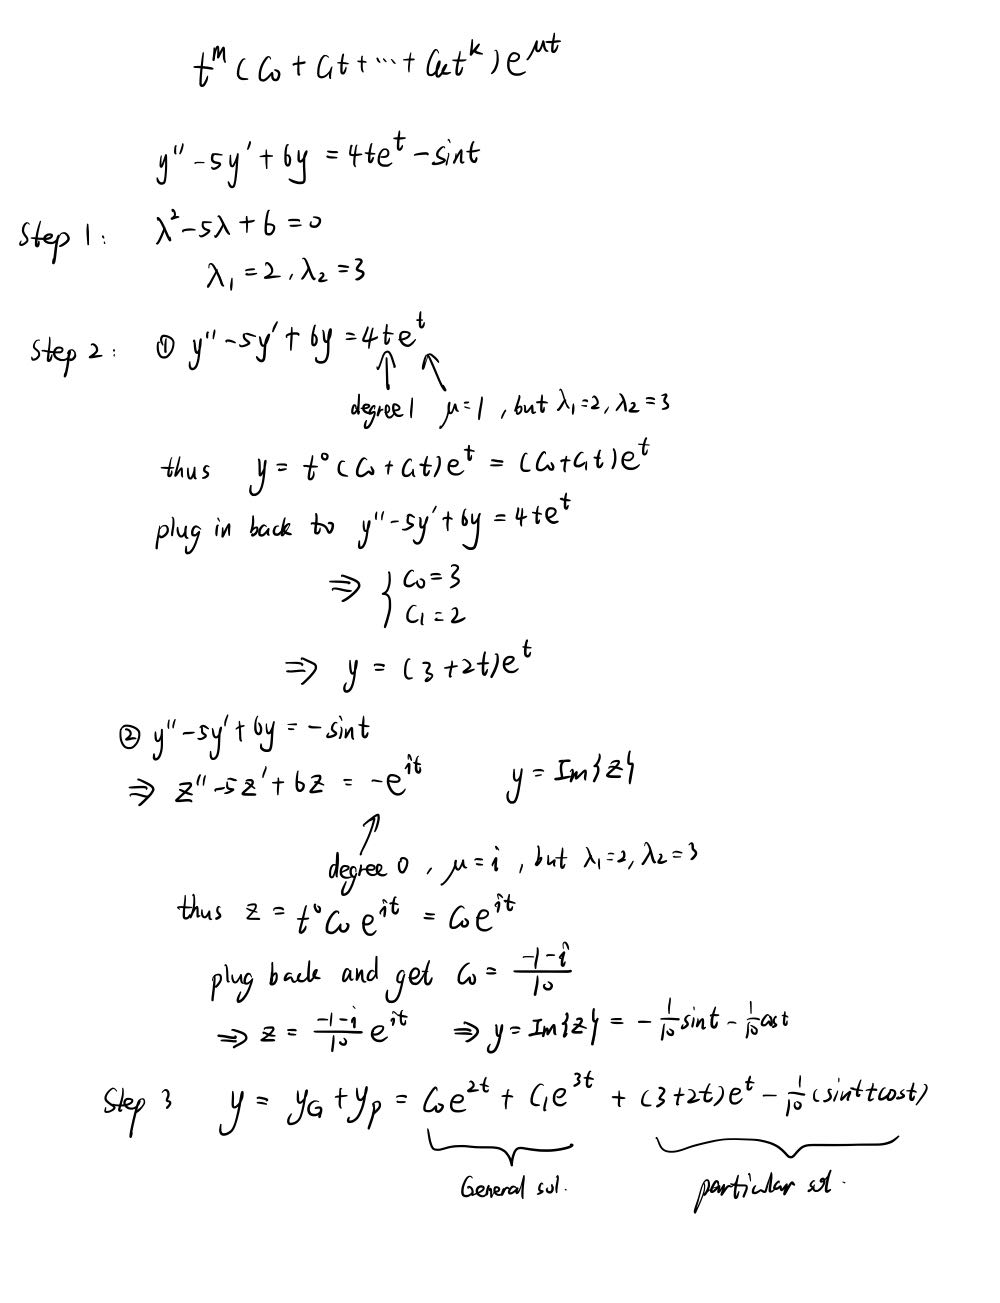 t^m (C₀ + C₁t + ⋯ + Cₖt^k) e^{μt}
y'' - 5y' + 6y = 4te^t - sint
Step 1: λ² - 5λ + 6 = 0
λ₁ = 2, λ₂ = 3
Step 2: ① y'' - 5y' + 6y = 4te^t
degree 1 μ=1, but λ₁=2, λ₂=3
thus y = t⁰(C₀ + C₁t)e^t = (C₀+C₁t)e^t
plug in back to y'' - 5y' + 6y = 4te^t
⇒ { C₀ = 3
C₁ = 2
⇒ y = (3+2t)e^t
② y'' - 5y' + 6y = - sint
⇒ z'' - 5z' + 6z = -e^{it} y = Im{z}
degree 0, μ = i, but λ₁=2, λ₂=3
thus z = t⁰C₀ e^{it} = C₀e^{it}
plug back and get C₀ = (-1-i)/10
⇒ z = (-1-i)/10 e^{it} ⇒ y = Im{z} = - 1/10 sint - 1/10 cost
Step 3 y = y_G + y_P = C₀e^{2t} + C₁e^{3t} + (3+2t)e^t - 1/10 (sint+cost)
General sol. particular sol.